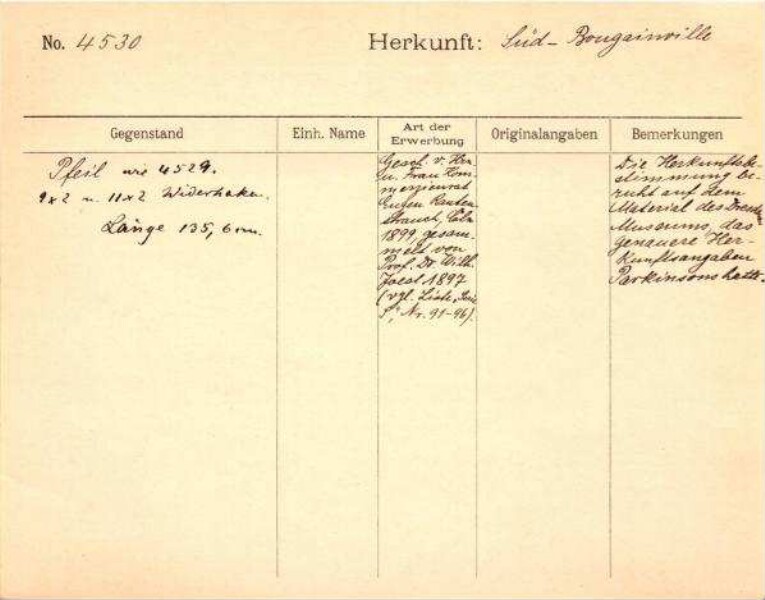 No. 4530 Herkunft: Süd-Bougainville
Gegenstand
Einh. Name
Art der
Erwerbung
Originalangaben
Bemerkungen
Pfeil wie 4529.
9x2 u. 11x2 Widerhaken.
Länge 135,6 cm.
Gesch. v. Herrn
u. Frau Kom-
merzienrat
Eugen Rauten-
strauch, Cöln
1899, gesam-
melt von
Prof. Dr. Wilh.
Joest 1897
(vgl. Liste, Serie
Nr. 91-96).
Die Herkunftsbe-
stimmung be-
ruht auf dem
Material des Dresdn.
Museums, das
genauere Her-
kunftsangaben
Parkinsons hatte.